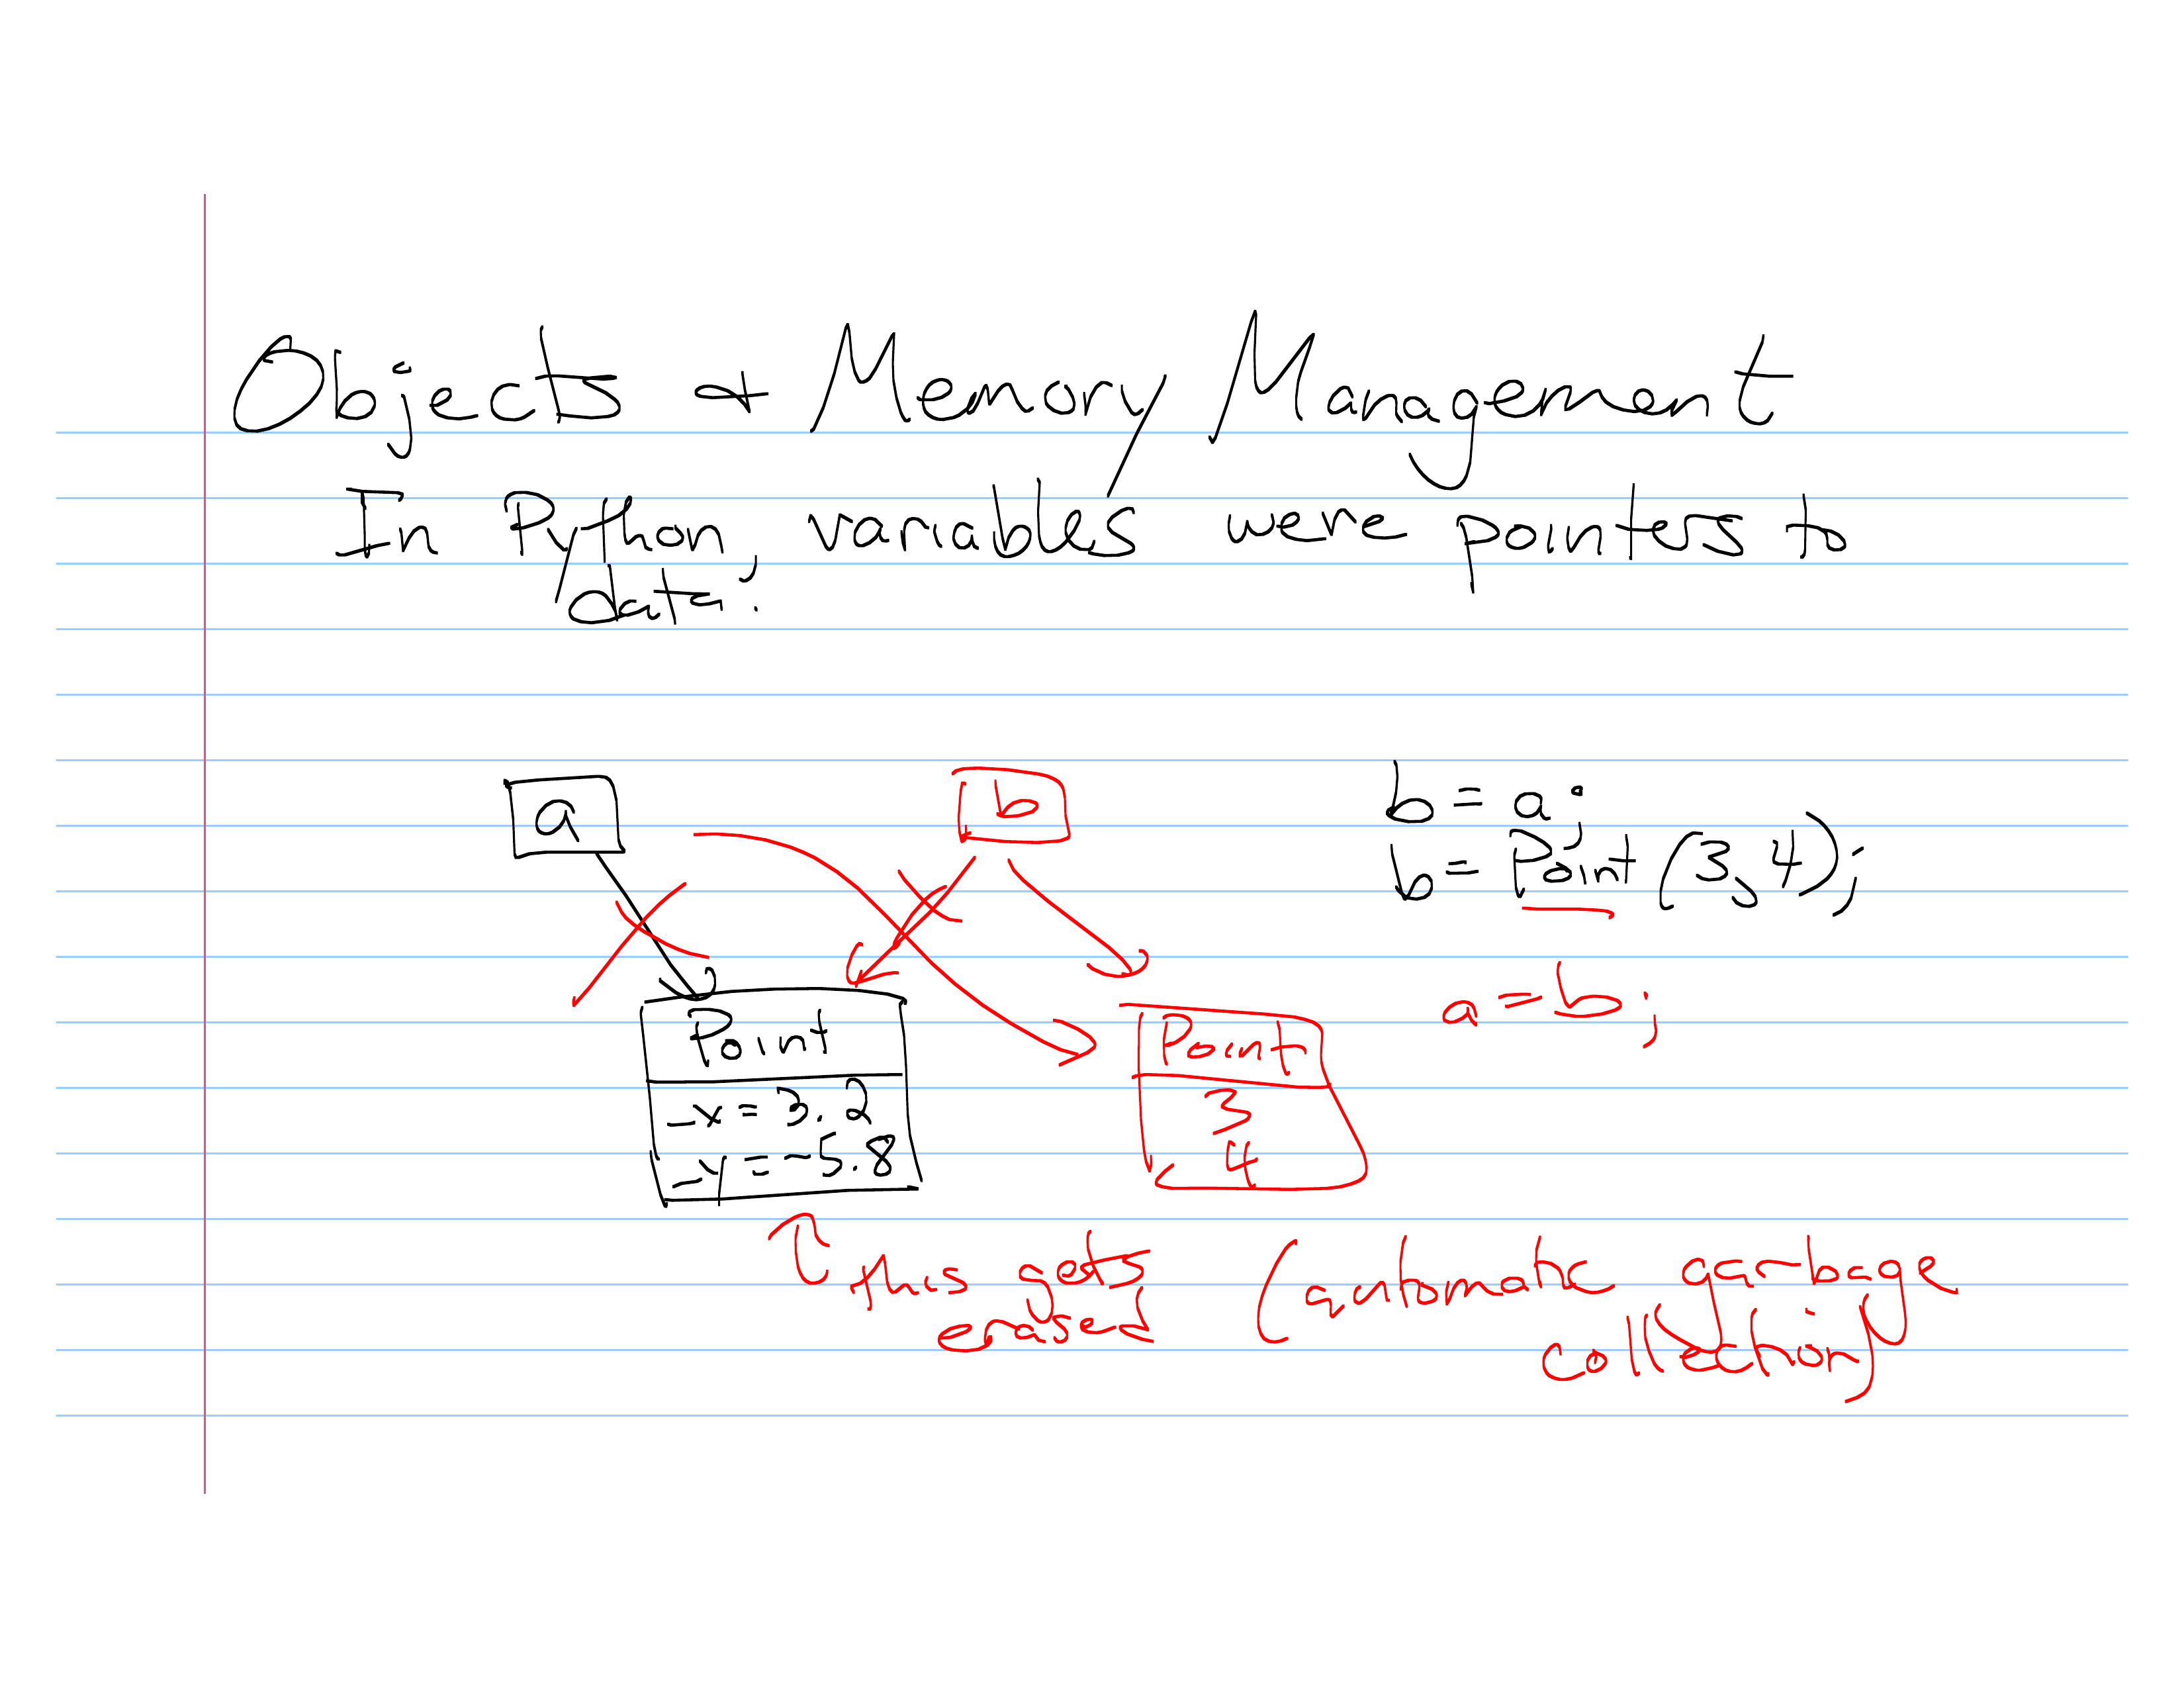 Objects & Memory Management
In Python, variables were pointers to
data:
a
b
b = a;
b = Point (3,4);
a = b;
Point
_x = 3.2
_y = -5.8
Point
3
4
this gets
erased
(automatic garbage
collection)